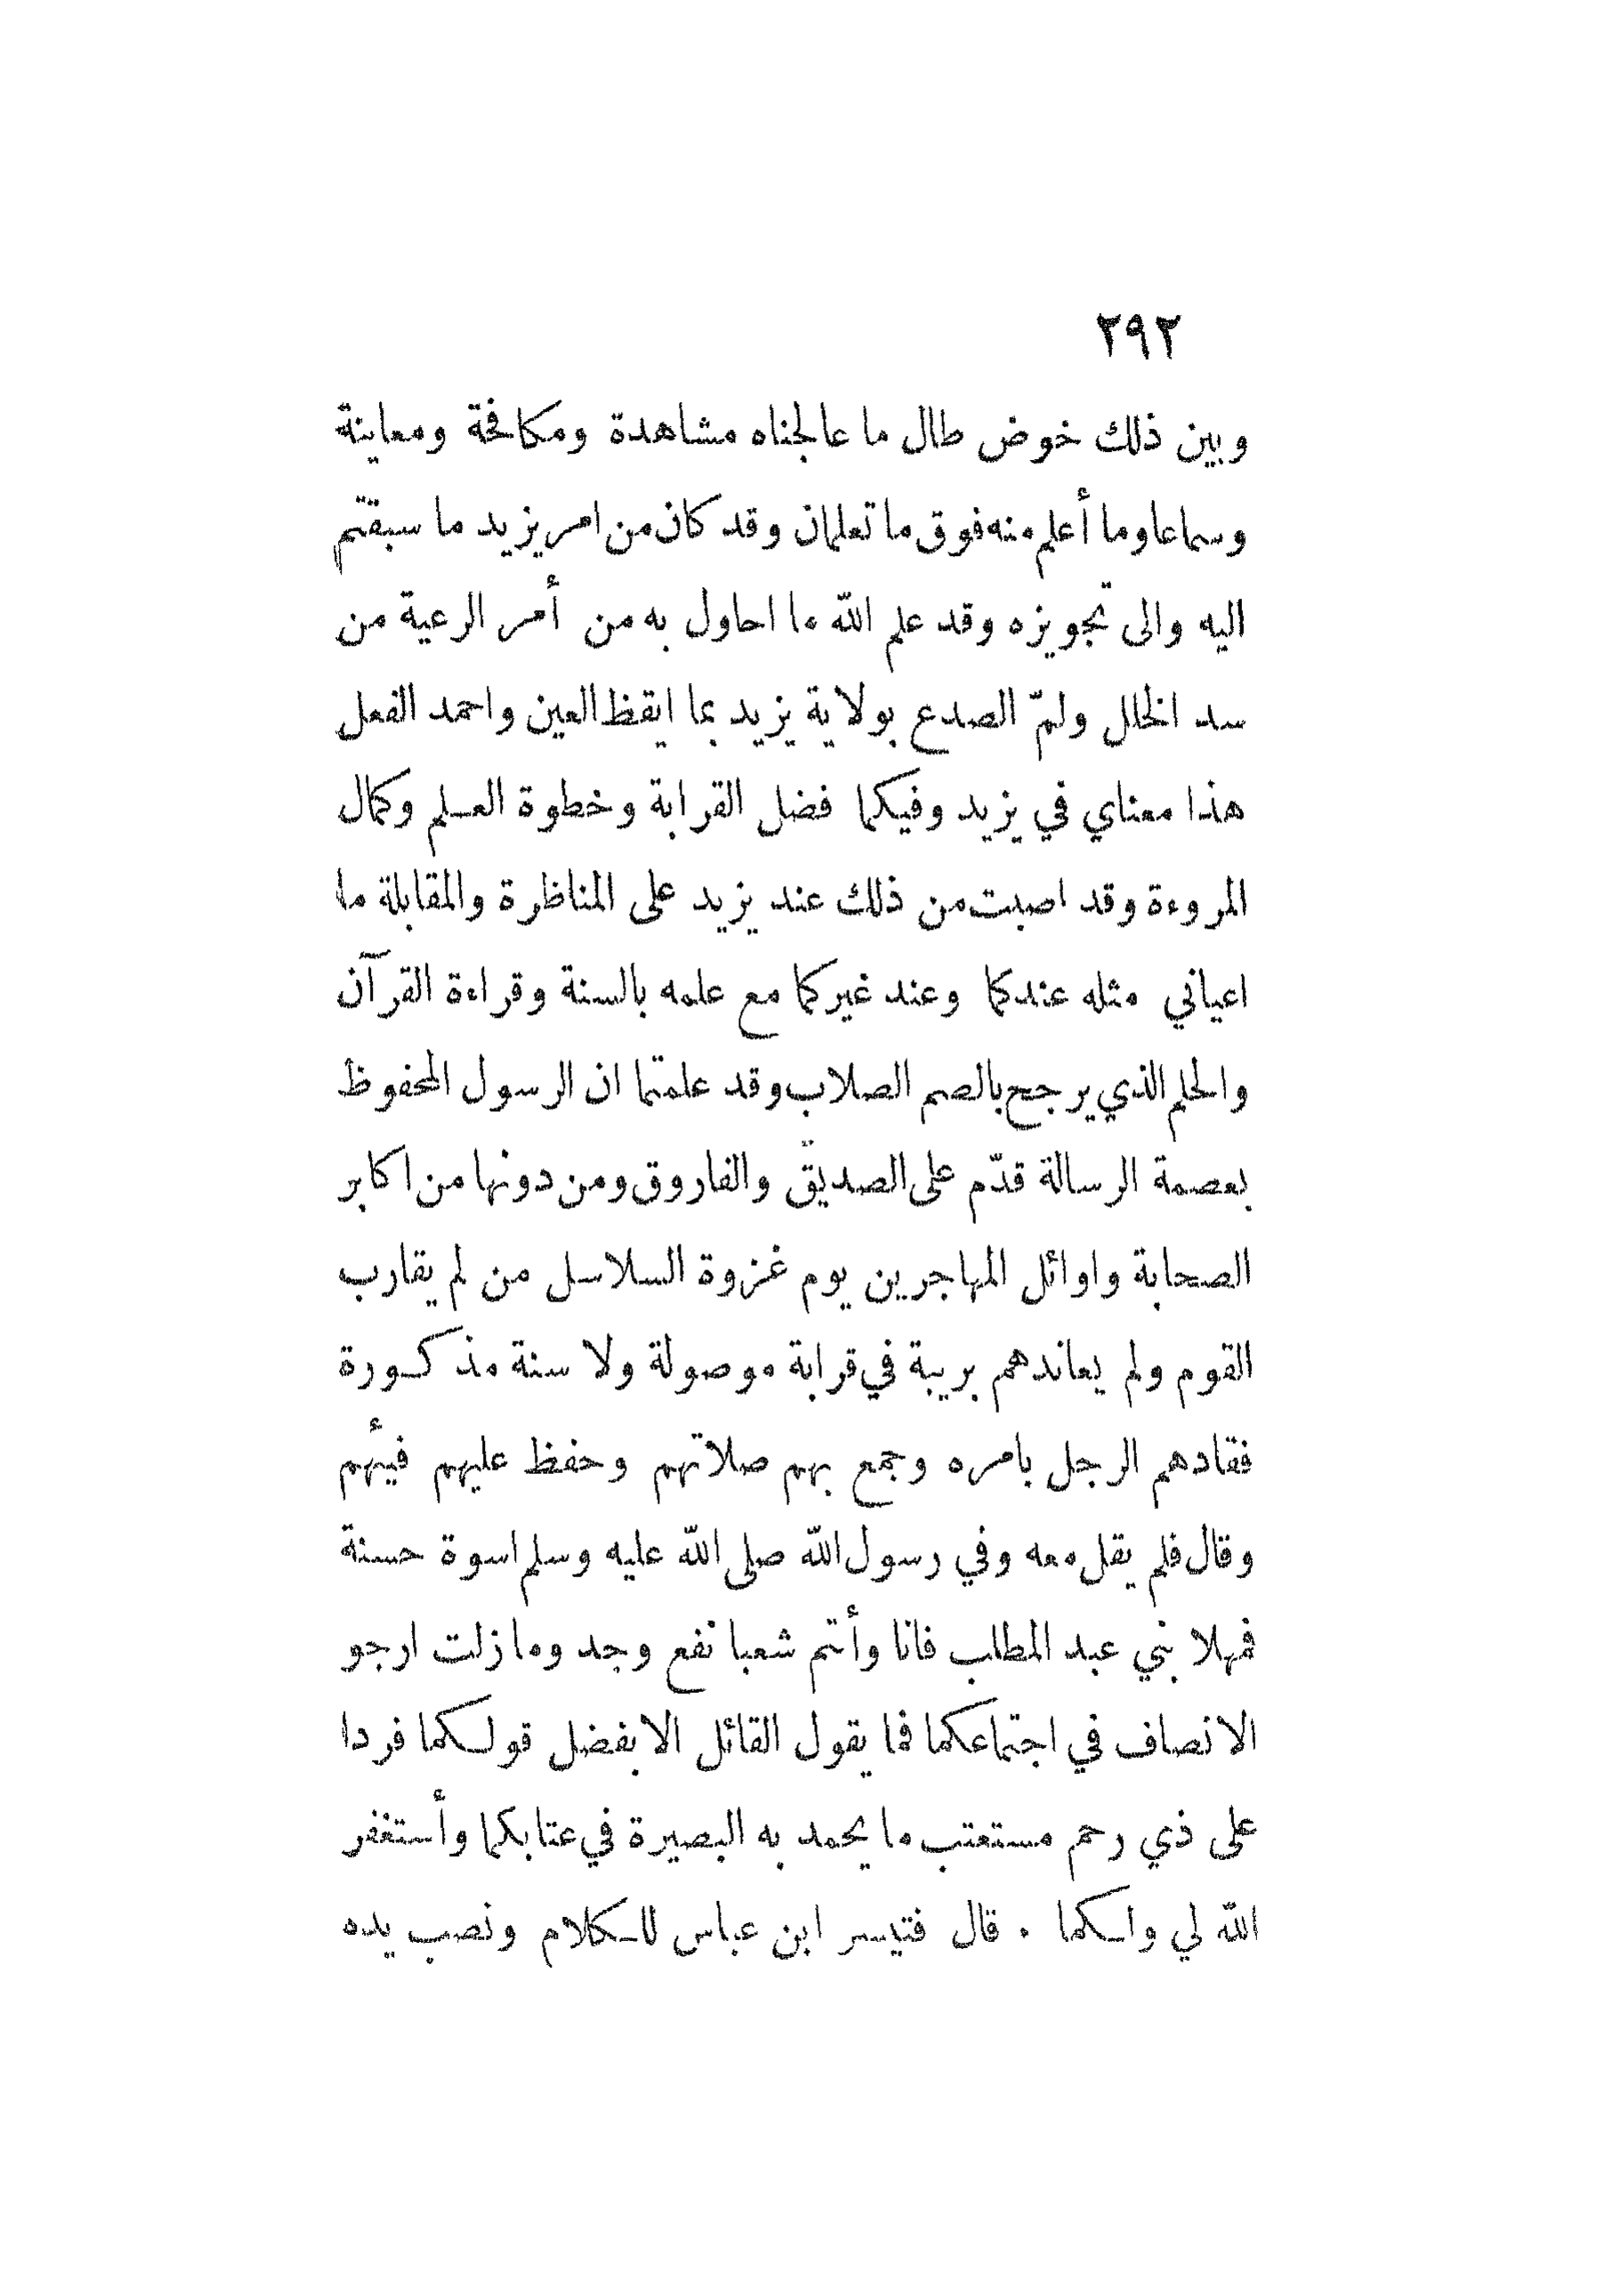 ٢٩٢
وبين ذلك خوض طال ما عالجناه مشاهدة ومكافحة ومعاينة
وسماعا وما أعلم منه فوق ما تعلمان وقد كان من امر يزيد ما سبقتم
اليه والى تجويزه وقد علم الله ما احاول به من أمر الرعية من
سد الخلل ولمّ الصدع بولاية يزيد بما ايقظ العين واحمد الفعل
هذا معناي في يزيد وفيكما فضل القرابة وخطوة العلم وكمال
المروءة وقد اصبت من ذلك عند يزيد على المناظرة والمقابلة ما
اعياني مثله عندكما وعند غيركما مع علمه بالسنة وقراءة القرآن
والحلم الذي يرجح بالصم الصلاب وقد علمتما ان الرسول المحفوظ
بعصمة الرسالة قدّم على الصديق والفاروق ومن دونهما من اكابر
الصحابة واوائل المهاجرين يوم غزوة السلاسل من لم يقارب
القوم ولم يعاندهم بريبة في قرابة موصولة ولا سنة مذكورة
فقادهم الرجل بامره وجمع بهم صلاتهم وحفظ عليهم فيئهم
وقال فلم يقل معه وفي رسول الله صلى الله عليه وسلم اسوة حسنة
فمهلا بني عبد المطلب فانا وأنتم شعبا نفع وجد وما زلت ارجو
الانصاف في اجتماعكما فما يقول القائل الا بفضل قولكما فردا
على ذي رحم مستعتب ما يحمد به البصيرة في عتابكما وأستغفر
الله لي ولكما . قال فتيسر ابن عباس للكلام ونصب يده